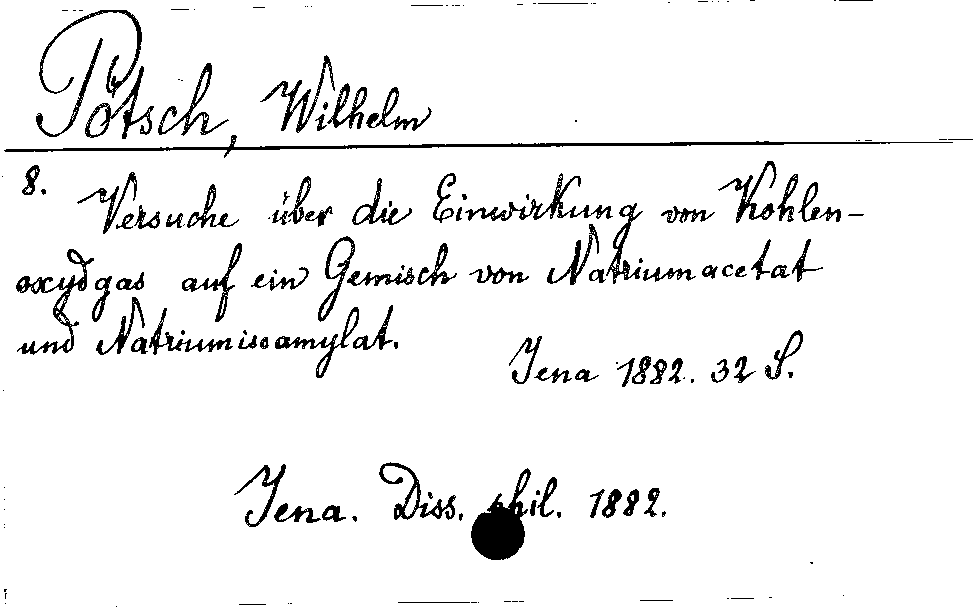 Pötsch, Wilhelm
8.
Versuche über die Einwirkung von Kohlen-
oxydgas auf ein Gemisch von Natriumacetat
und Natriumisoamylat.
Jena 1882. 32 S.
Jena. Diss. phil. 1882.